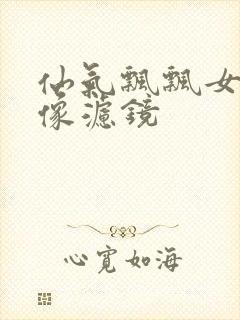 仙氣飄飄女
像濾鏡
心寬如海